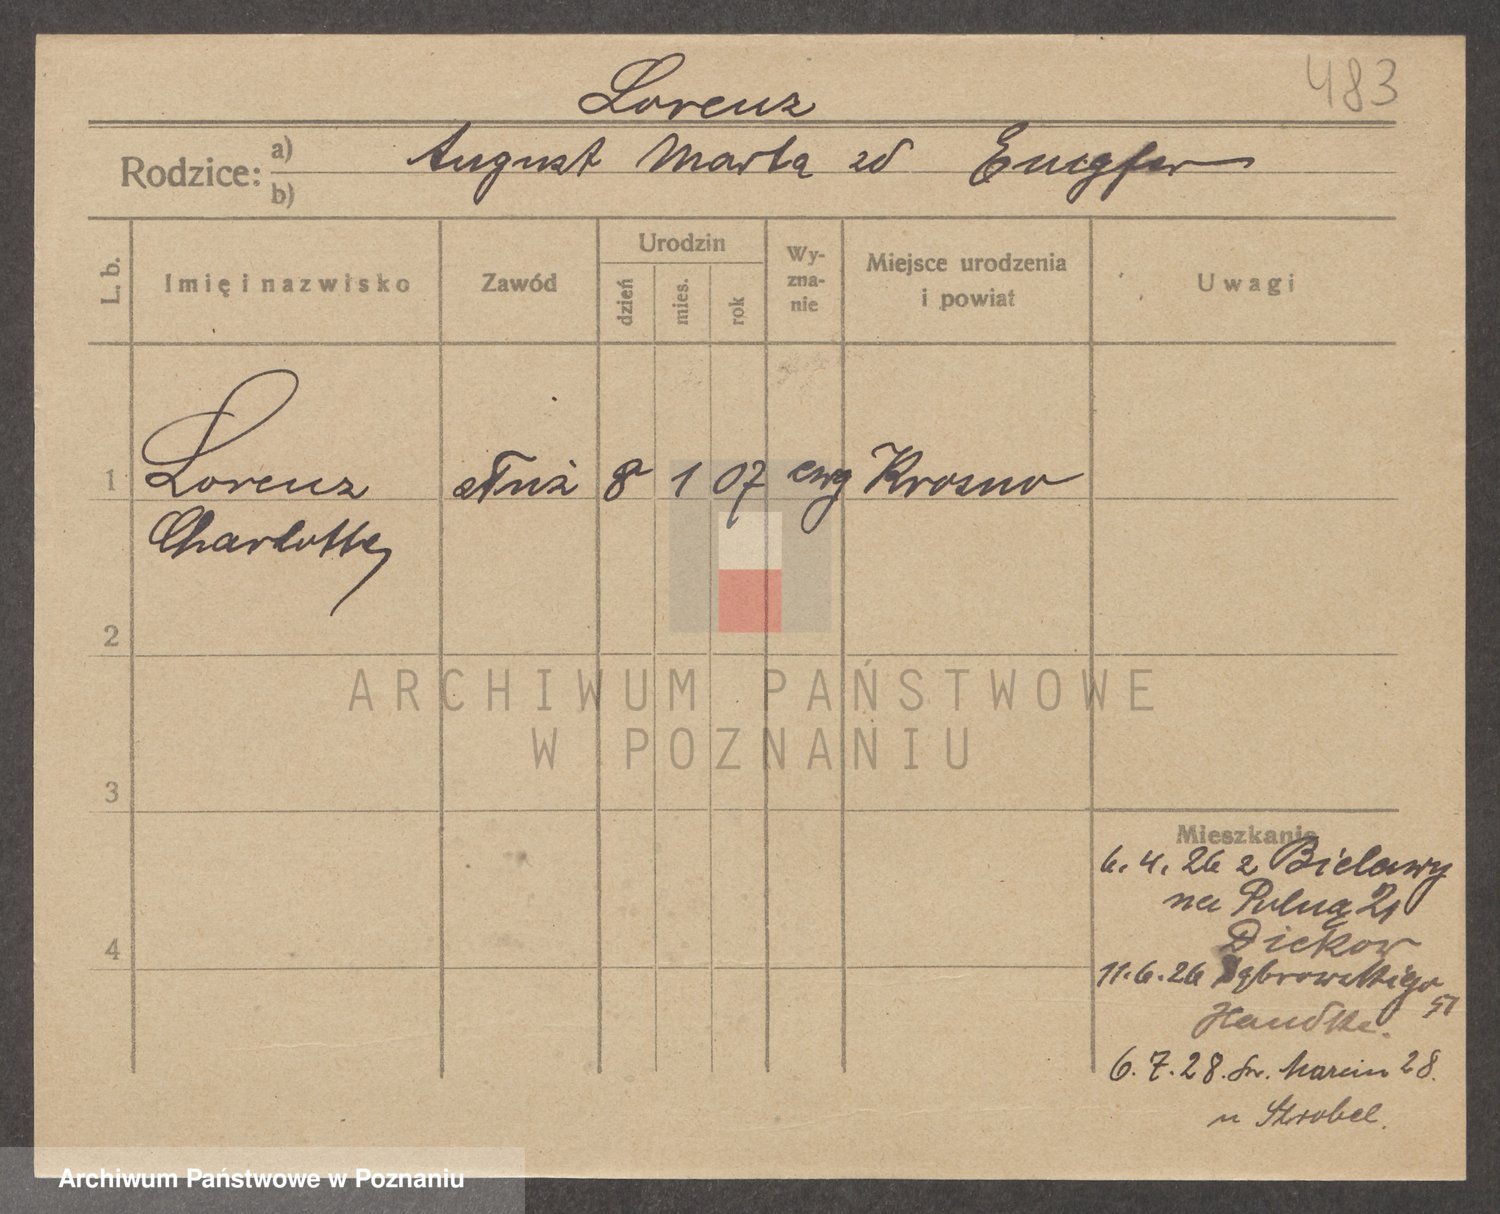 483
Lorenz
Rodzice: a) b)
August Marta zd
L. b.
Imię i nazwisko
Zawód
Urodzin
dzień
mies.
rok
Wy-
zna-
nie
Miejsce urodzenia
i powiat
Uwagi
1 Lorenz służ 8 1 07 ewg Krosno
Charlotte
2
3
4
ARCHIWUM PAŃSTWOWE
W POZNANIU
Mieszkanie
6. 4. 26 z Bielawy
na Polną 21
Dickow
11. 6. 26 Dąbrowskiego
51
Handke.
6. 7. 28. św. Marcin 28.
u Strobel.
Archiwum Państwowe w Poznaniu